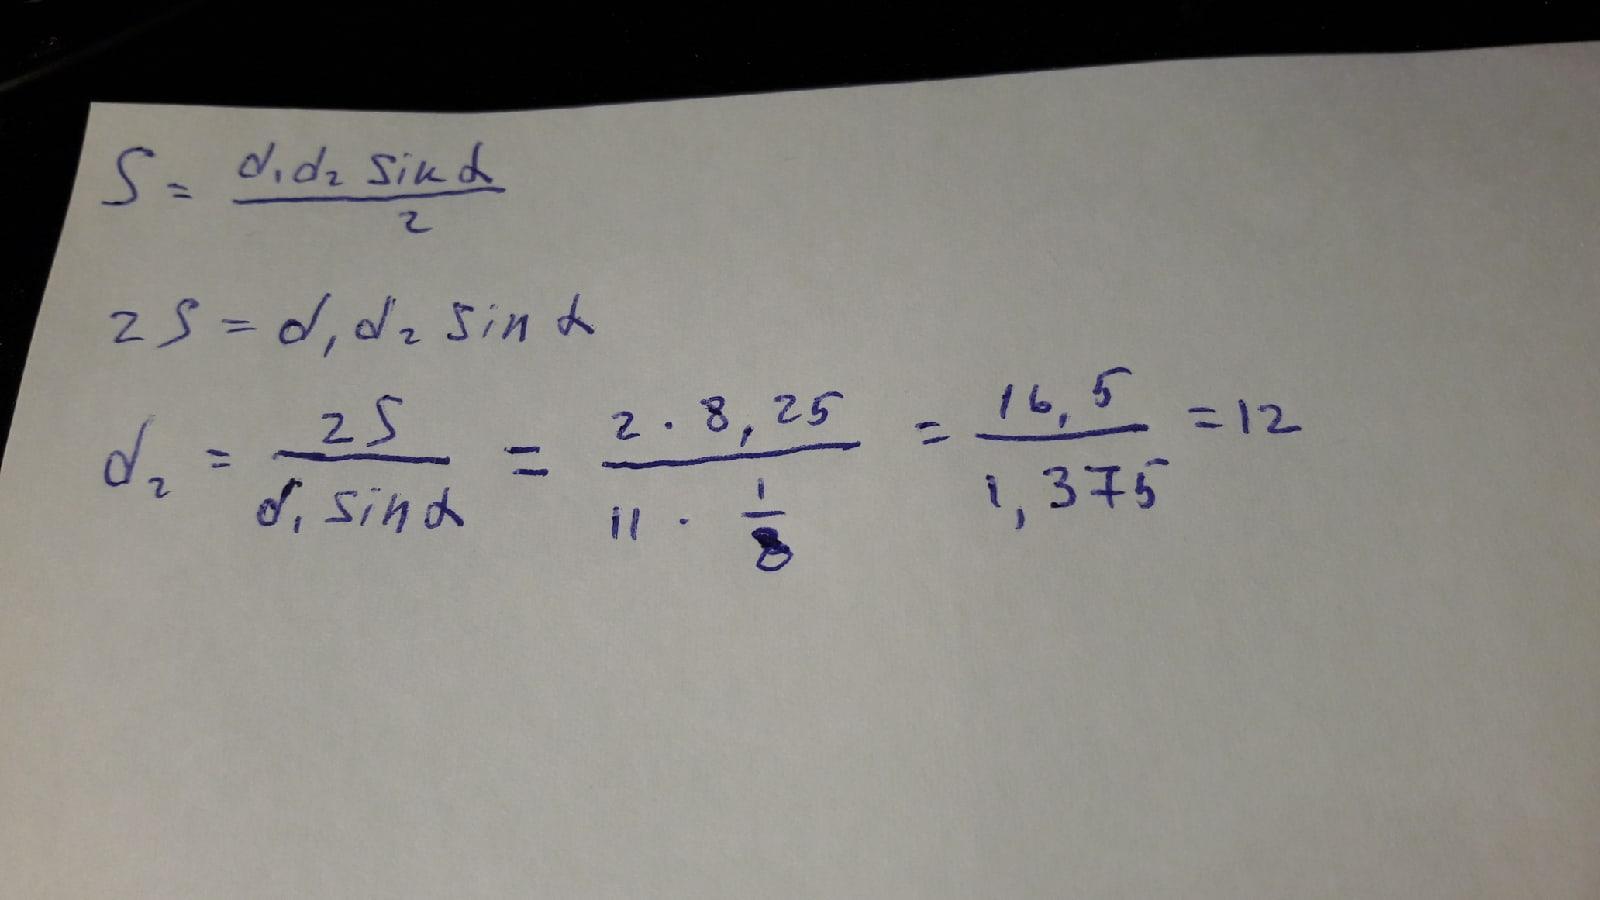 S = d₁d₂ sin α / 2
2S = d₁d₂ sin α
d₂ = 2S / d₁ sin α = 2 · 8,25 / 11 · 1/8 = 16,5 / 1,375 = 12